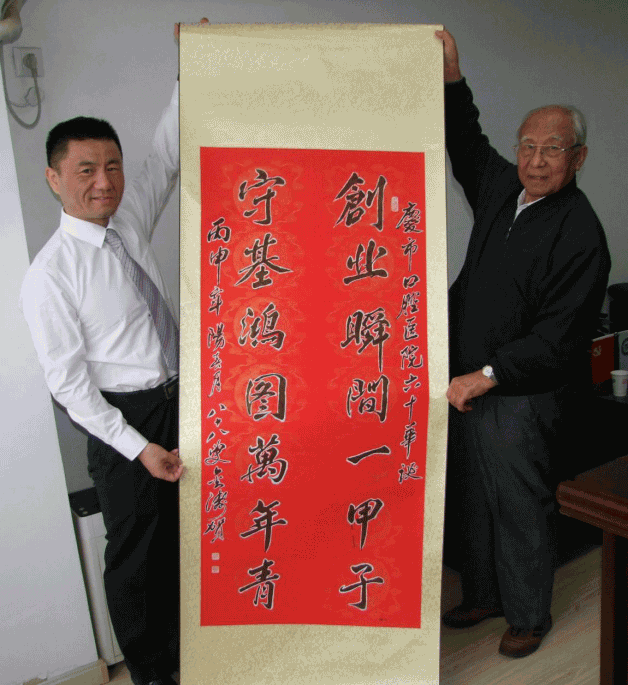 慶市口腔医院六十華诞
創业瞬間一甲子
守基鴻图萬年青
丙申年陽春月八十八叟金濤賀